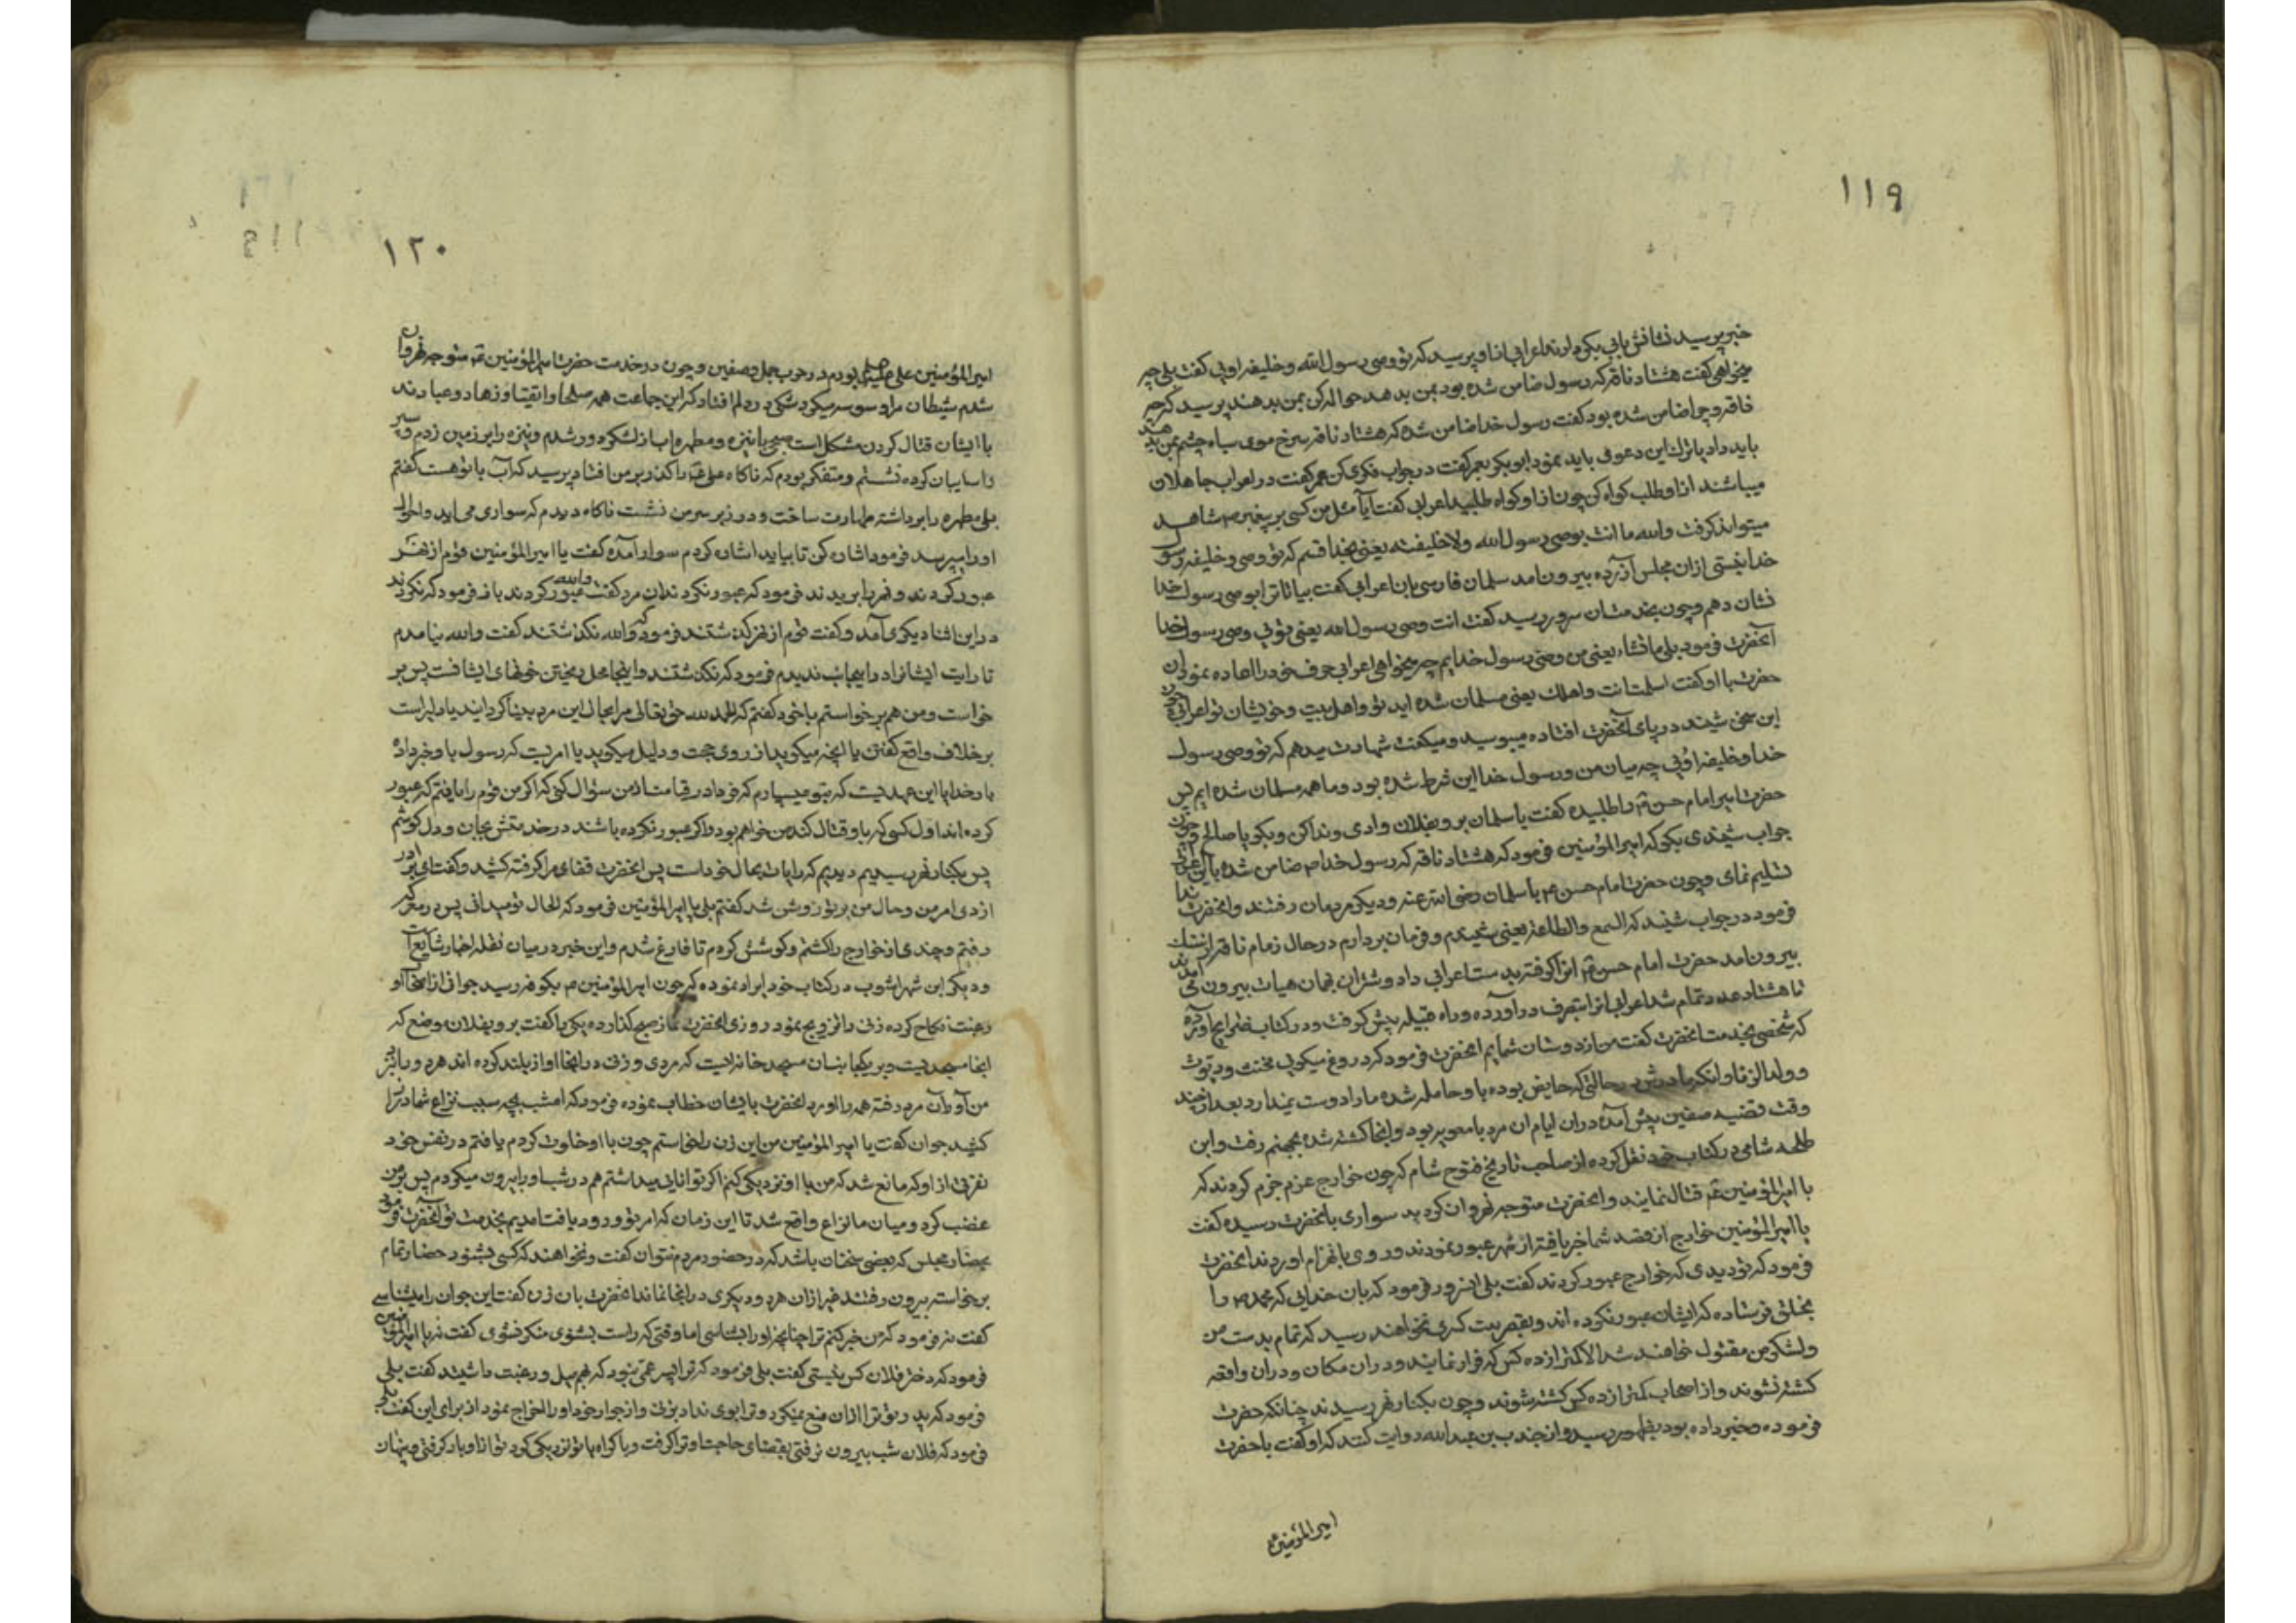 ١١٩
خبر پرسید نشانش بابی بکر دادند اعرابی از او پرسید که تو وصی رسول الله و خلیفه اوئی گفت بلی چه
میخواهی گفت هشتاد ناقه که رسول ضامن شده بود بمن بدهد حواله کن بمن بدهند پرسید که چه
ناقه و چرا ضامن شده بود گفت رسول خدا ضامن شده که هشتاد ناقه سرخ موی سیاه چشم بمن بدهد
باید داد یا ترک این دعوی باید نمود ابو بکر بعمر گفت در جواب فکری کن عمر گفت در اعراب جاهلان
میباشند از او طلب گواه کن چون از او گواه طلبید اعرابی گفت آیا مثل من کسی بر پیغمبر ص شاهد
میتواند گرفت والله ما انت بوصی رسول الله ولا خلیفته یعنی بخدا قسم که تو وصی و خلیفه رسول
خدا نیستی ازان مجلس آزرده بیرون امد سلمان فارسی بان اعرابی گفت بیا تا ترا بوصی رسول خدا
نشان دهم و چون بخدمت ان سرور رسید گفت انت وصی رسول الله یعنی توئی وصی رسول خدا
آنحضرت فرمود بلی ما تشاء یعنی من وصی رسول خدایم چه میخواهی اعرابی حرف خود را اعاده نمود ان
حضرت با او گفت اسلمت انت و اهلک یعنی مسلمان شده اید تو و اهل بیت و خویشان تو اعرابی چون
این سخن شنید در پای آنحضرت افتاده میبوسید و میگفت شهادت میدهم که تو وصی رسول
خدا و خلیفه اوئی چه میان من و رسول خدا این شرط شده بود و ما همه مسلمان شده ایم پس
حضرت امیر امام حسن ع را طلبیده گفت با سلمان برو بفلان وادی و ندا کن و بگو یا صالح و چون
جواب شنیدی بگو که امیر المؤمنین فرمود که هشتاد ناقه که رسول خدا ص ضامن شده باین اعرابی
تسلیم نمای و چون حضرت امام حسن ع با سلمان رضی الله عنه و دیگر مردمان رفتند و انحضرت ندا
فرمود در جواب شنید که السمع والطاعة یعنی شنیدم و فرمان بردارم در حال زمام ناقه از سنگ
بیرون امد حضرت امام حسن ع انرا گرفته بدست اعرابی داد و شتران بهمان هیات بیرون می امدند
تا هشتاد عدد تمام شد اعرابی انرا بتصرف در آورده و راه قبیله پیش گرفت و در کتاب خرایج آورده
که شخصی بخدمت انحضرت گفت من از دوستان شمایم انحضرت فرمود که دروغ میگوئی مخنث و دیوث
و ولد الزنا و انکه مادرش در حالتی که حایض بوده باو حامله شده ما را دوست نمیدارد بعد از چند
وقت قضیه صفین پیش آمده دران ایام ان مرد با معویه بود و انجا کشته شده بجهنم رفت و ابن
طلحه شامی در کتاب خود نقل کرده از صاحب تاریخ فتوح شام که چون خوارج عزم جزم کردند که
با امیر المؤمنین ع قتال نمایند و انحضرت متوجه نهروان گردید سواری بانحضرت رسیده گفت
یا امیر المؤمنین خوارج از قصد شما خبر یافته از نهر عبور نمودند و روی بانهزام اوردند انحضرت
فرمود که تو دیدی که خوارج عبور کردند گفت بلی انسرور فرمود که بان خدایی که محمد ص را
بخلق فرستاده که ایشان عبور نکرده اند و بقصر بنت کسری نخواهند رسید که تمام بدست من
و لشکر من مقتول خواهند شد الا کمتر از ده کس که فرار نمایند و دران مکان و دران واقعه
کشته نشوند و از اصحاب کمتر از ده کس کشته شوند و چون بکنار نهر رسیدند چنانکه حضرت
فرموده و خبر داده بود بظهور رسید و از جندب بن عبدالله روایت کنند که او گفت با حضرت
امیر المؤمنین
١٢٠
امیر المؤمنین علی علیه بودم در حرب جمل و صفین و چون در خدمت حضرت امیر المؤمنین ع متوجه نهروان
شدم شیطان مرا وسوسه میکرد شکی در دلم افتاد که این جماعت همه صلحا و اتقیا و زهاد و عبادند
با ایشان قتال کردن مشکل است صبحی با نیزه و مطهره اب از لشکر دور شدم و نیزه را بر زمین زدم و سپر
را سایبان کرده نشستم و متفکر بودم که ناگاه علی ع را گذر بر من افتاد پرسید که آب با تو هست گفتم
بلی مطهره را برداشته طهارت ساخت و در زیر سر من نشست ناگاه دیدم که سواری می اید و احوال
او را میپرسد فرمود اشاره کن تا بیاید اشاره کردم سوار آمده گفت یا امیر المؤمنین قوم از نهر
عبور کردند و نهر را بریدند فرمود که عبور نکردند ان مرد گفت والله عبور کردند باز فرمود که نکردند
در این اثنا دیگری آمد و گفت قوم از نهر گذشتند فرمود که والله نگذشتند گفت والله نیامدم
تا رایت ایشانرا در اینجانب ندیدم فرمود که نگذشتند و اینجا محل ریختن خونهای ایشانست پس بر
خواست و من هم برخواستم با خود گفتم که الحمد لله حق تعالی مرا بحال این مرد بینا گردانید یا دلیراست
بر خلاف واقع گفتن یا انچه میگوید از روی حجت و دلیل میگوید یا امریست که رسول باو خبر داده
بار خدایا این عهدیست که بتو میسپارم که فردا در قیامت از من سؤال کنی که اگر من قوم را یافتم که عبور
کرده اند اول کسی که با او قتال کند من خواهم بود و اگر عبور نکرده باشند در خدمتش بجان و دل کوشم
پس بکنار نهر رسیدیم دیدیم که رایات بحال خود است پس انحضرت قفای مرا گرفته کشید و گفت ای برادر
ازدی امر من و حال من بر تو روشن شد گفتم بلی یا امیر المؤمنین فرمود که الحال تو میدانی پس در معرکه
رفتم و چندی از خوارج را کشتم و کوشش کردم تا فارغ شدم و این خبر در میان نقله اخبار شایع است
و دیگر ابن شهراشوب در کتاب خود ایراد نموده که چون امیر المؤمنین ع بکوفه رسید جوانی از انجا او
رغبت نکاح کرده زنی را تزویج نمود روزی انحضرت نماز صبح گذارده یکی را گفت برو بفلان موضع که
انجا مسجدیست و بر یکجانب ان مسجد خانه ایست که مردی و زنی در انجا اواز بلند کرده اند هردو را نزد
من آور آن مرد رفته همه را اورد انحضرت بایشان خطاب نموده فرمود که امشب بچه سبب نزاع شما دراز
کشید جوان گفت یا امیر المؤمنین من این زن را خواستم چون با او خلوت کردم یافتم در نفس خود
نفرتی از او که مانع شد که من با او نزدیکی کنم اگر توانایی میداشتم هم در شب او را بیرون میکردم پس بر من
غضب کرد و میان ما نزاع واقع شد تا این زمان که امر تو ورود یافت امدیم بخدمت تو آنحضرت فرمود
بحضار مجلس که بعضی سخنان باشد که در حضور مردم نتوان گفت و نخواهند که کسی بشنود حضار تمام
برخواسته بیرون رفتند غیر از ان هردو دیگری در انجا نماند انحضرت بان زن گفت این جوان را میشناسی
گفت نه فرمود که من خبر کنم ترا چنانچه او را بشناسی اما وقتی که راست بشنوی منکر نشوی گفت نه یا امیر المؤمنین
فرمود که دختر فلان کس نیستی گفت بلی فرمود که ترا پسر عمی نبود که بهم میل و رغبت داشتید گفت بلی
فرمود که پدر تو ترا ازان منع میکرد و ترا بوی نداد بزنی و از جوار خود او را اخراج نمود از برای این گفت بلی
فرمود که فلان شب بیرون رفتی بقضای حاجت او ترا گرفت و باکراه با تو نزدیکی کرد تو از او بار گرفتی و پنهان